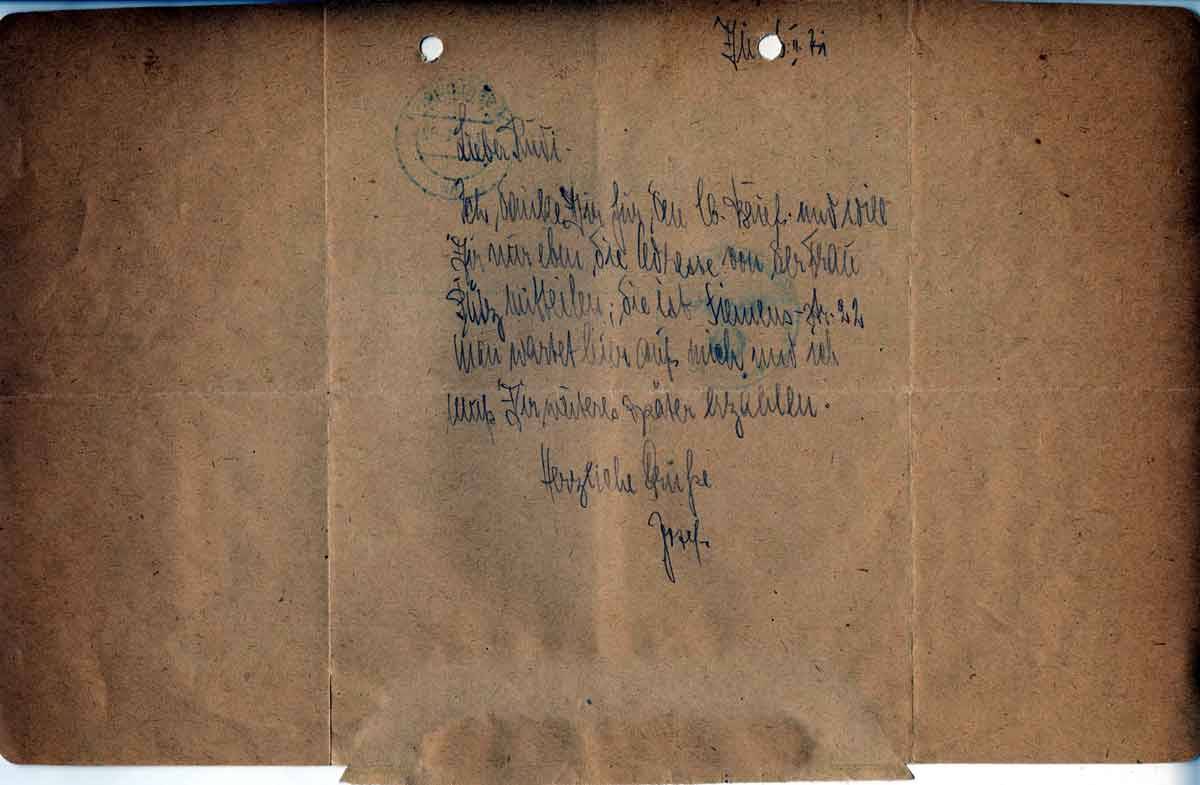 Lieber Rudi.
Ich danke Dir für den lb. Brief. und will
Dir nur eben die Adresse von der Frau
mitteilen; die ist Siemens-Str. 22
Man wartet hier auf mich und ich
muß Dir weiteres später erzählen.
Herzliche Grüße
Josef.